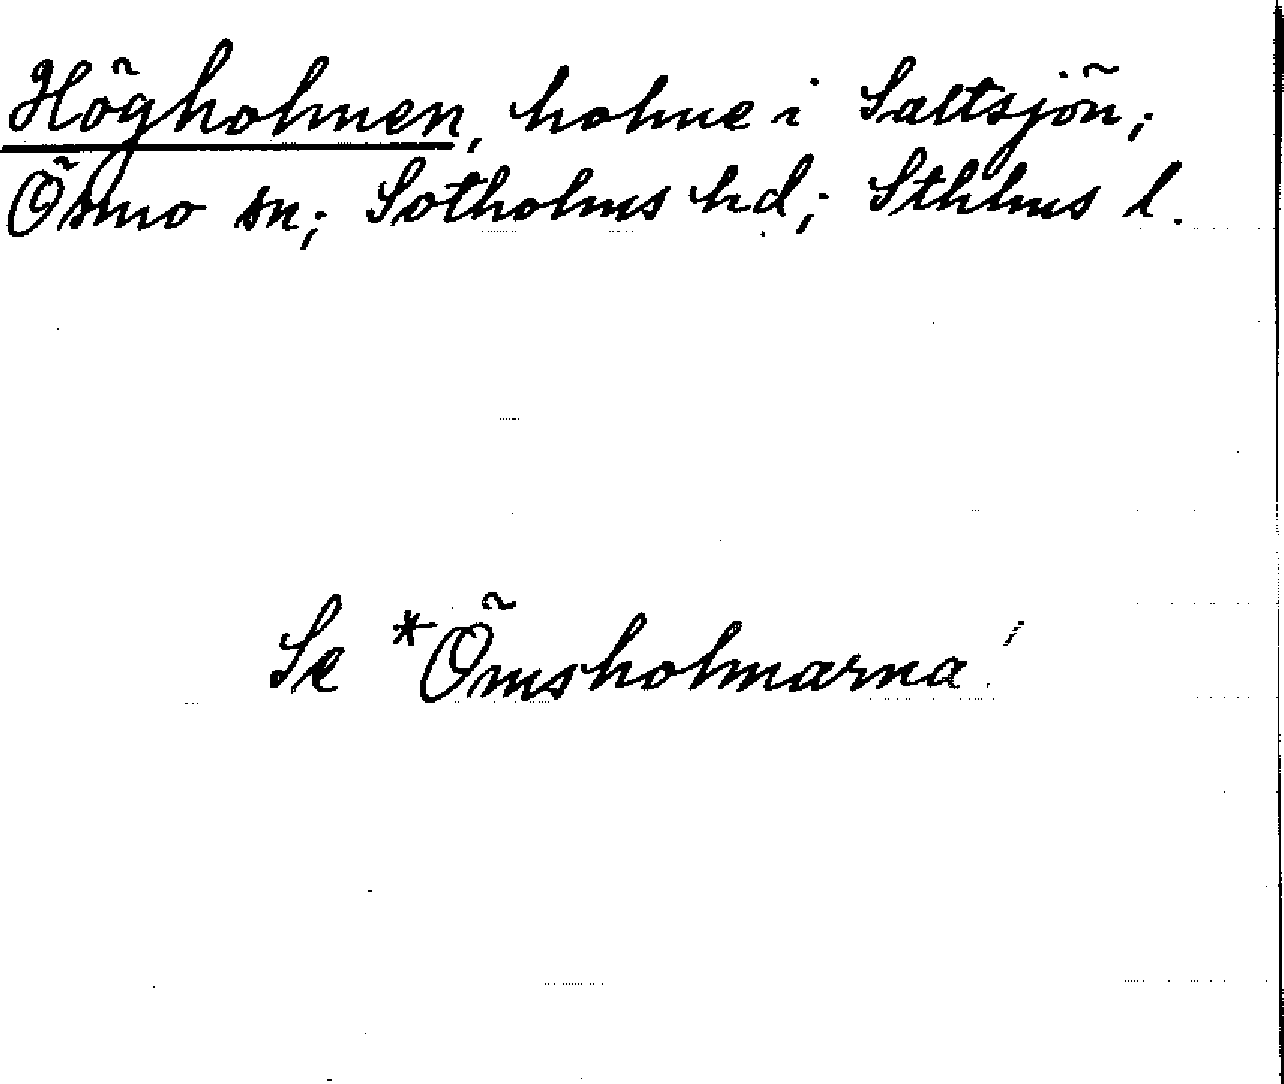 Högholmen, holme i Saltsjön;
Ösmo sn; Sotholms hd; Sthlms l.
Se *Ömsholmarna!